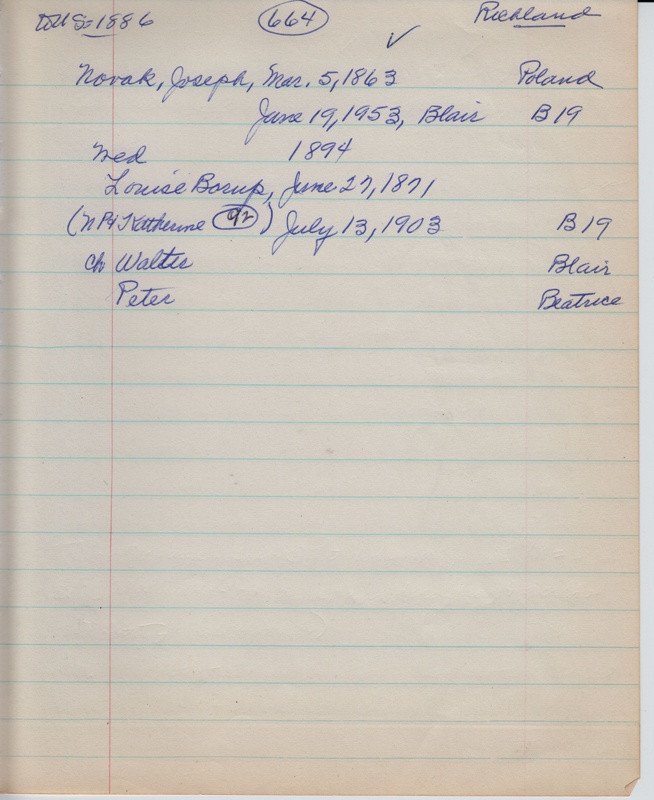 to U S-1886 664 Richland
✓
Novak, Joseph, Mar. 5, 1863 Poland
June 19, 1953, Blair B19
Wed 1894
Louise Borup, June 27, 1871
( Katherine 92 ) July 13, 1903 B19
ch Walter Blair
Peter Beatrice